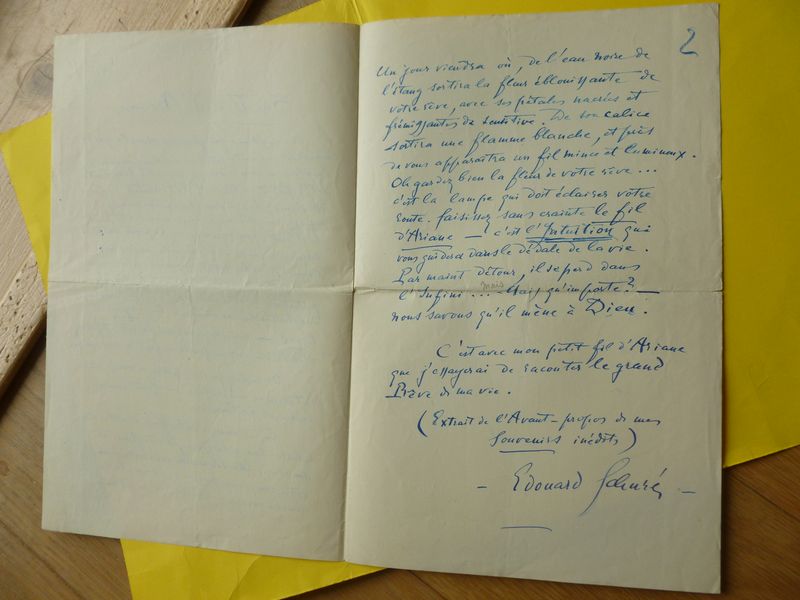 2
Un jour viendra où, de l'eau noire de
l'étang sortira la fleur éblouissante de
votre rêve, avec ses pétales nacrés et
frémissantes de sensitive. De son calice
sortira une flamme blanche, et près
de vous apparaîtra un fil mince et lumineux.
Oh gardez bien la fleur de votre rêve ...
c'est la lampe qui doit éclairer votre
route. Saisissez sans crainte le fil
d'Ariane — c'est l'Intuition qui
vous guidera dans le dédale de la vie.
Par maint détour, il se perd dans
l'Infini ... mais qu'importe? —
nous savons qu'il mène à Dieu.
C'est avec mon petit fil d'Ariane
que j'essayerai de raconter le grand
Rêve de ma vie.
(Extrait de l'Avant-propos de mes
Souvenirs inédits)
— Edouard Schuré —